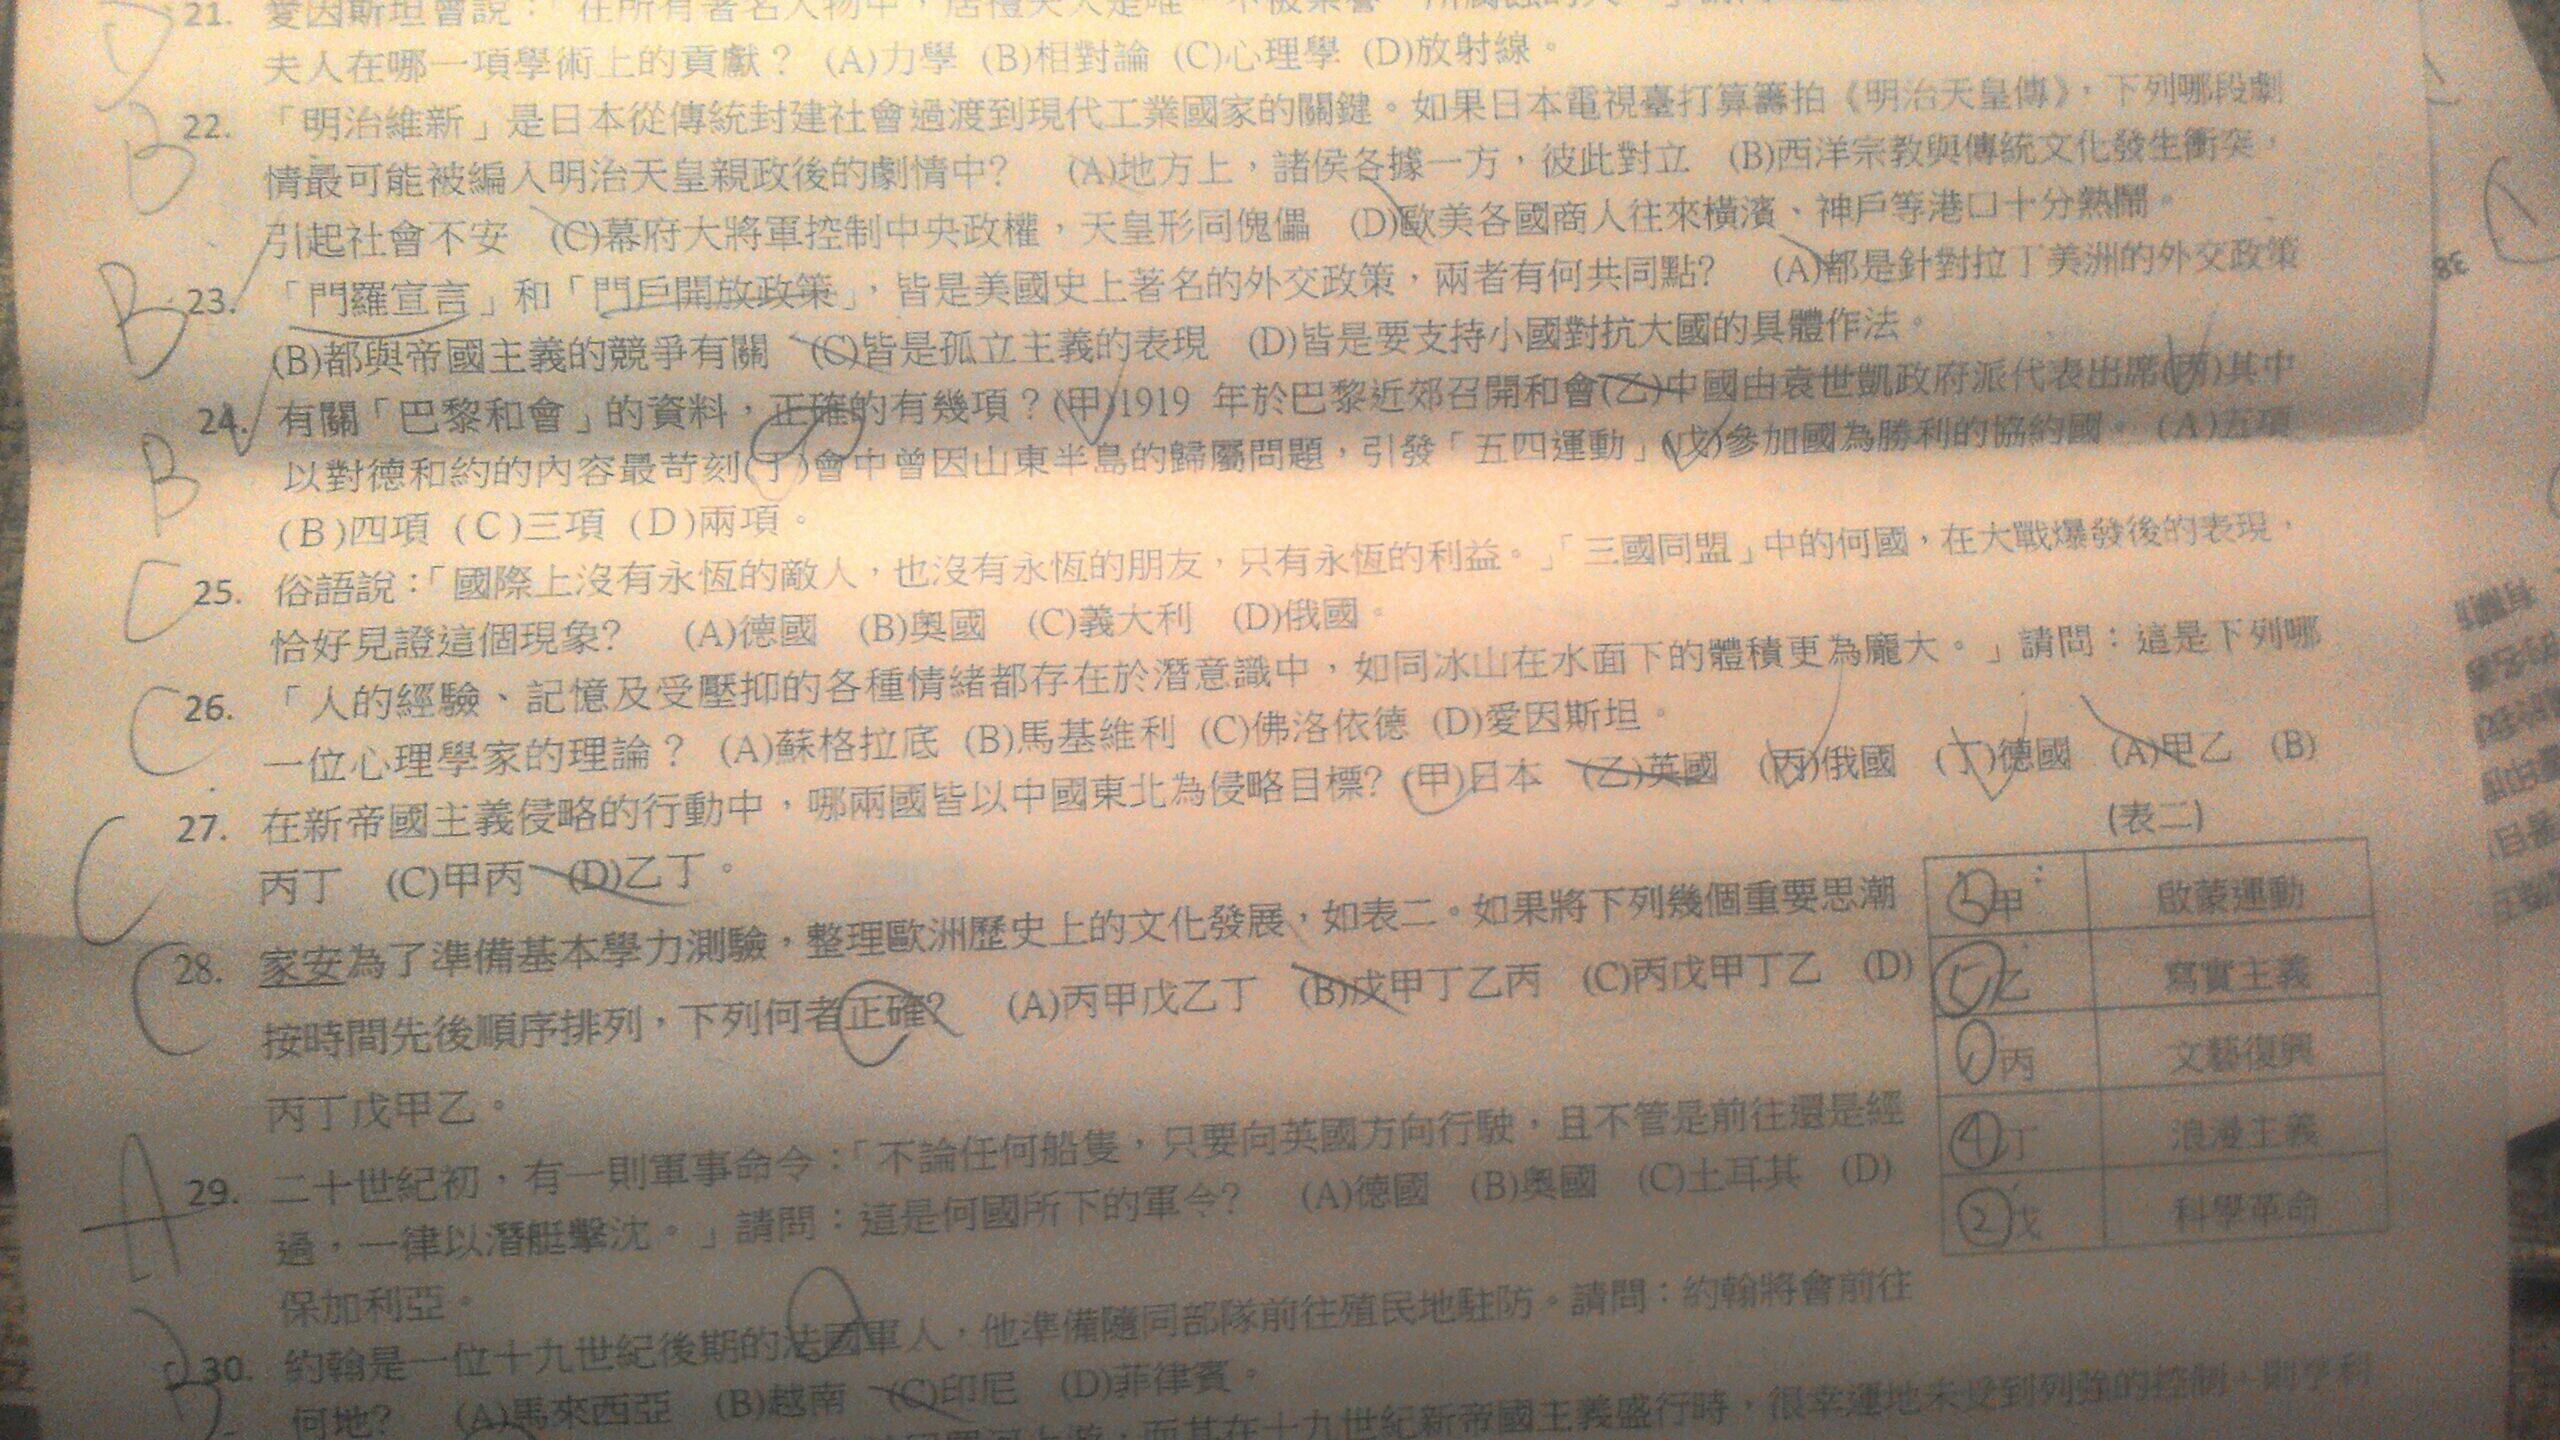 21. 愛因斯坦曾說：「在所有著名人物中，居禮夫人是唯一不被榮譽
夫人在哪一項學術上的貢獻？ (A)力學 (B)相對論 (C)心理學 (D)放射線。
22. 「明治維新」是日本從傳統封建社會過渡到現代工業國家的關鍵。如果日本電視臺打算籌拍《明治天皇傳》，下列哪段劇
情最可能被編入明治天皇親政後的劇情中? (A)地方上，諸侯各據一方，彼此對立 (B)西洋宗教與傳統文化發生衝突，
引起社會不安 (C)幕府大將軍控制中央政權，天皇形同傀儡 (D)歐美各國商人往來橫濱、神戶等港口十分熱鬧。
23. 「門羅宣言」和「門戶開放政策」，皆是美國史上著名的外交政策，兩者有何共同點? (A)都是針對拉丁美洲的外交政策
(B)都與帝國主義的競爭有關 (C)皆是孤立主義的表現 (D)皆是要支持小國對抗大國的具體作法。
24. 有關「巴黎和會」的資料，正確的有幾項？(甲)1919 年於巴黎近郊召開和會(乙)中國由袁世凱政府派代表出席(丙)其中
以對德和約的內容最苛刻(丁)會中曾因山東半島的歸屬問題，引發「五四運動」(戊)參加國為勝利的協約國。 (A)五項
(B)四項 (C)三項 (D)兩項。
25. 俗語說：「國際上沒有永恆的敵人，也沒有永恆的朋友，只有永恆的利益。」「三國同盟」中的何國，在大戰爆發後的表現，
恰好見證這個現象? (A)德國 (B)奧國 (C)義大利 (D)俄國。
26. 「人的經驗、記憶及受壓抑的各種情緒都存在於潛意識中，如同冰山在水面下的體積更為龐大。」請問：這是下列哪
一位心理學家的理論？ (A)蘇格拉底 (B)馬基維利 (C)佛洛依德 (D)愛因斯坦。
27. 在新帝國主義侵略的行動中，哪兩國皆以中國東北為侵略目標? (甲)日本 (乙)英國 (丙)俄國 (丁)德國 (A)甲乙 (B)
丙丁 (C)甲丙 (D)乙丁。
28. 家安為了準備基本學力測驗，整理歐洲歷史上的文化發展，如表二。如果將下列幾個重要思潮
按時間先後順序排列，下列何者正確? (A)丙甲戊乙丁 (B)戊甲丁乙丙 (C)丙戊甲丁乙 (D)
丙丁戊甲乙。
(表二)
甲 啟蒙運動
乙 寫實主義
丙 文藝復興
丁 浪漫主義
戊 科學革命
29. 二十世紀初，有一則軍事命令：「不論任何船隻，只要向英國方向行駛，且不管是前往還是經
過，一律以潛艇擊沈。」請問：這是何國所下的軍令? (A)德國 (B)奧國 (C)土耳其 (D)
保加利亞。
30. 約翰是一位十九世紀後期的法國軍人，他準備隨同部隊前往殖民地駐防。請問：約翰將會前往
何地? (A)馬來西亞 (B)越南 (C)印尼 (D)菲律賓。
而其在十九世紀新帝國主義盛行時，很幸運地未受到列強的控制，
D
B
B
B
C
C
C
C
A
B